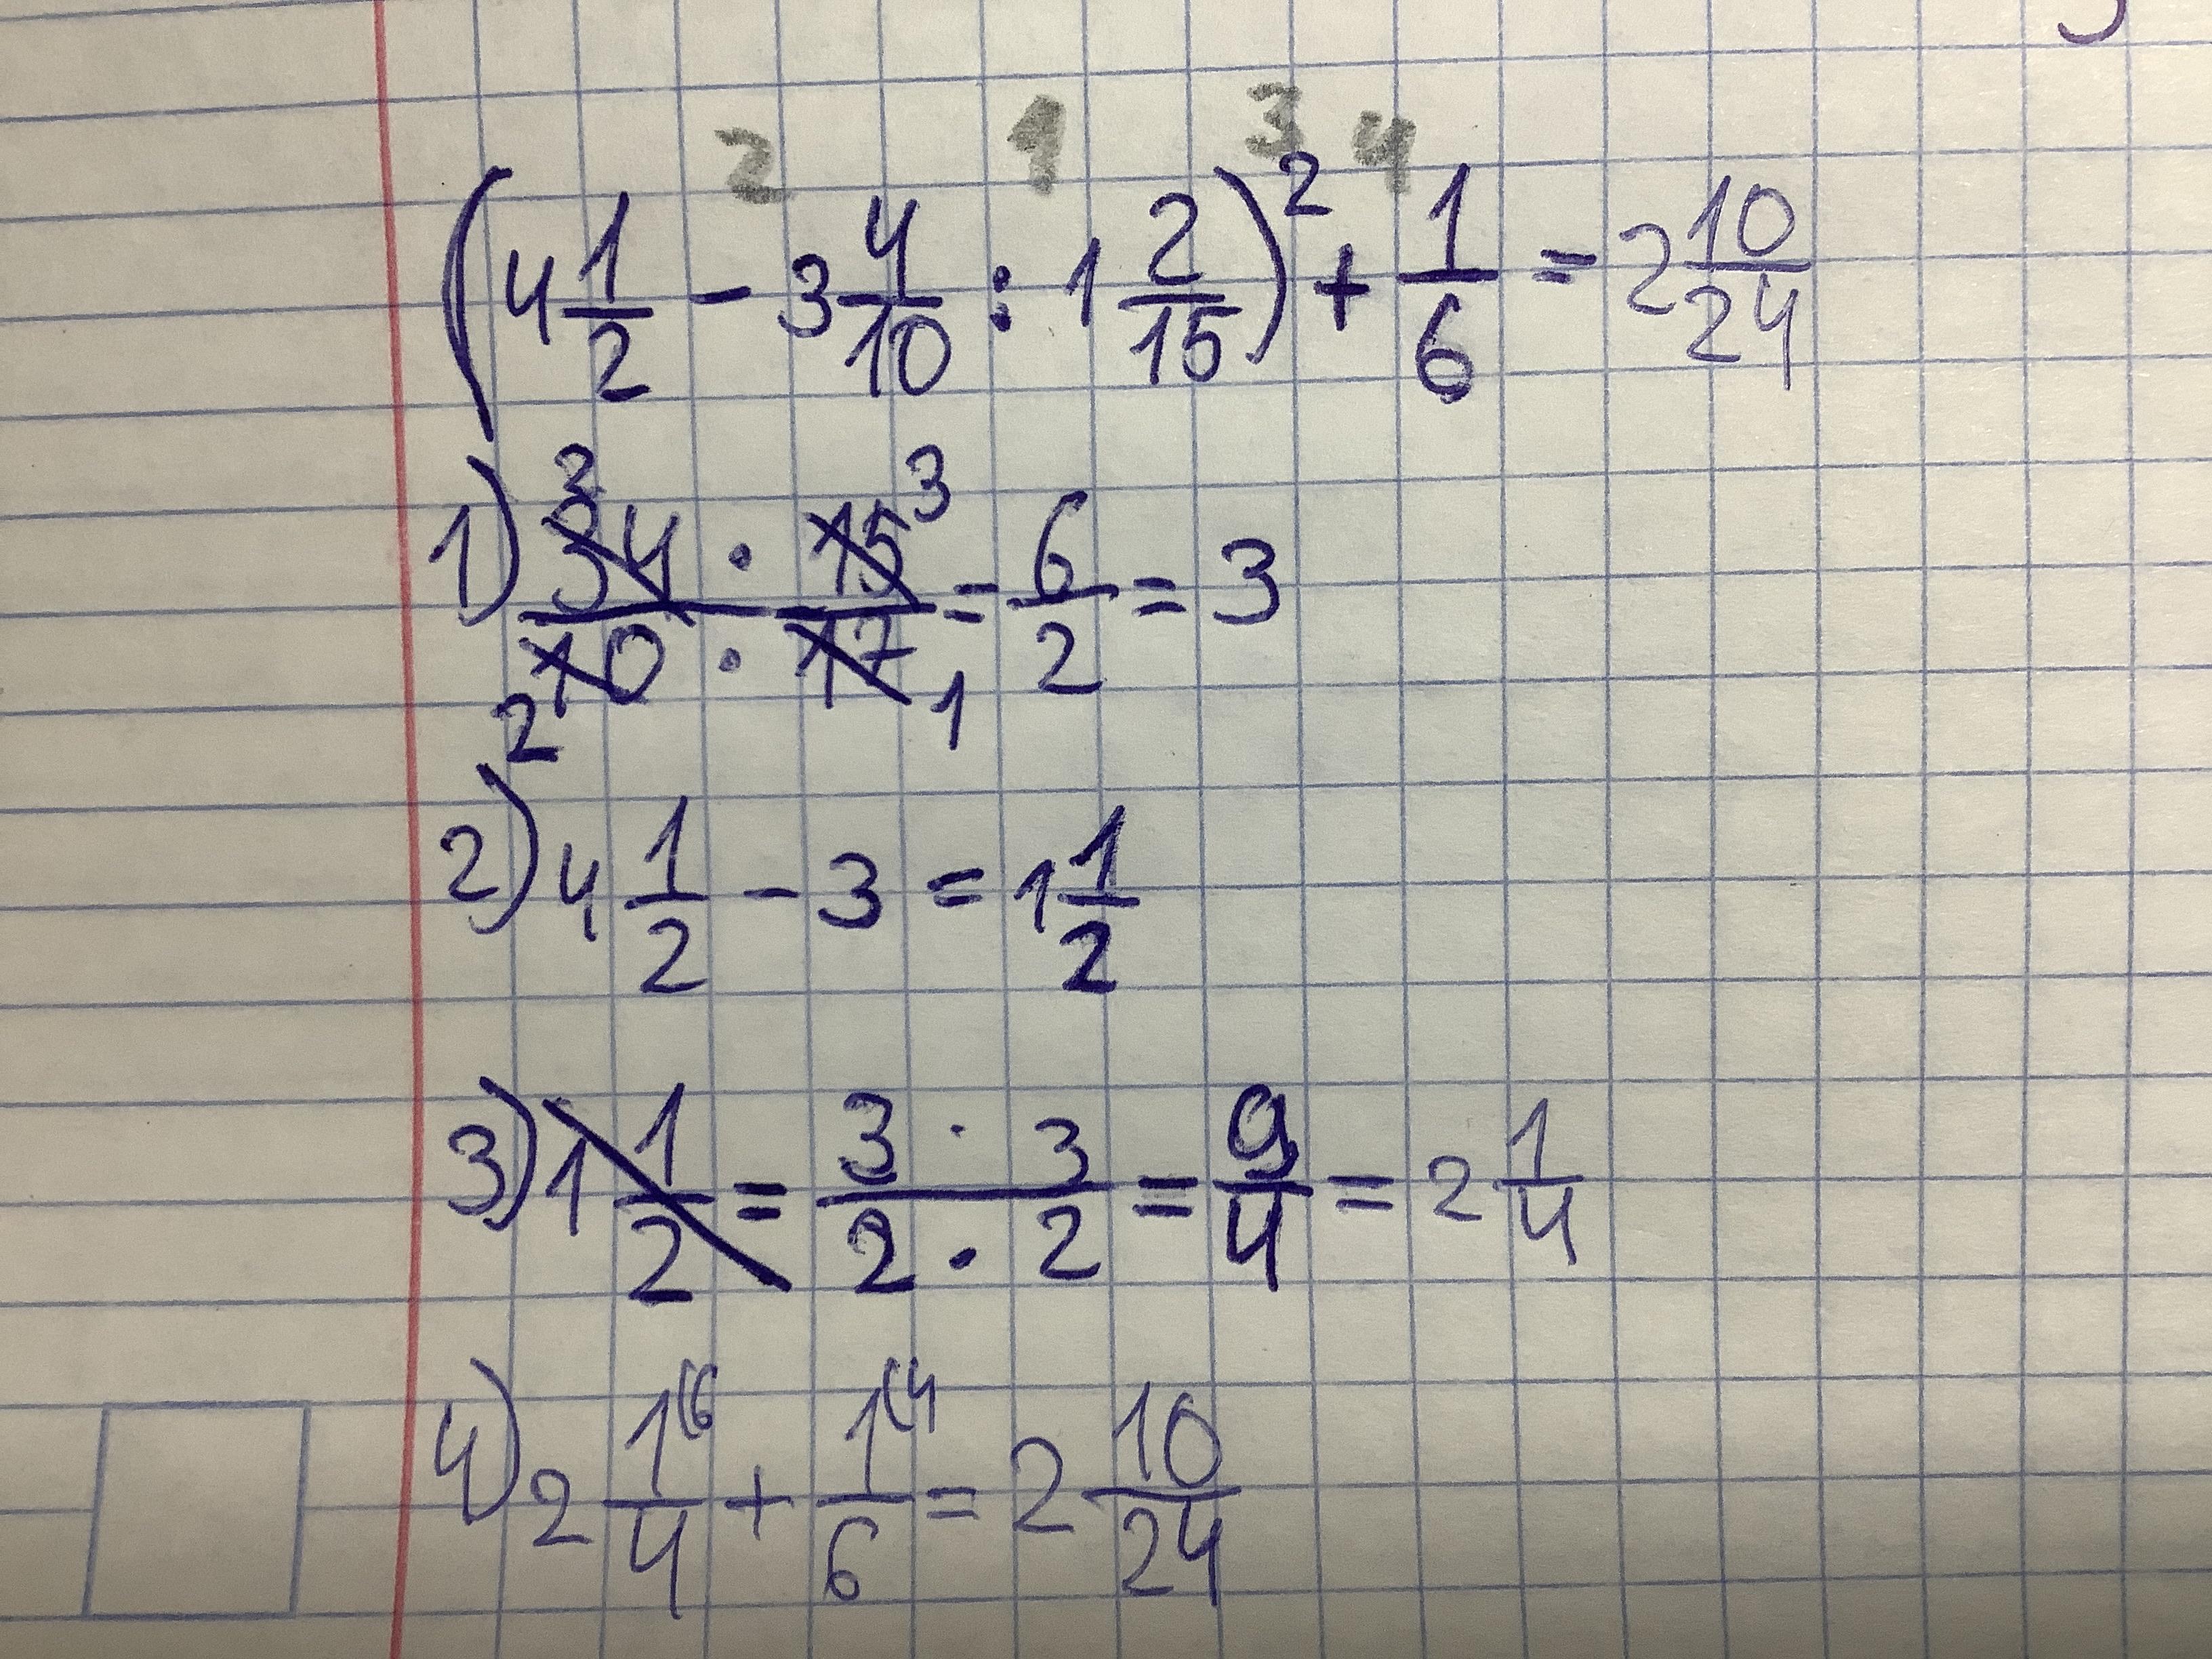 2 1 3 4
(4 1/2 - 3 4/10 : 1 2/15)² + 1/6 = 2 10/24
1) 34 · 15 3 / 2 10 · 17 1 = 6/2 = 3
2) 4 1/2 - 3 = 1 1/2
3) 1 1/2 = 3 · 3 / 2 · 2 = 9/4 = 2 1/4
4) 2 1(6/4 + 1(4/6 = 2 10/24